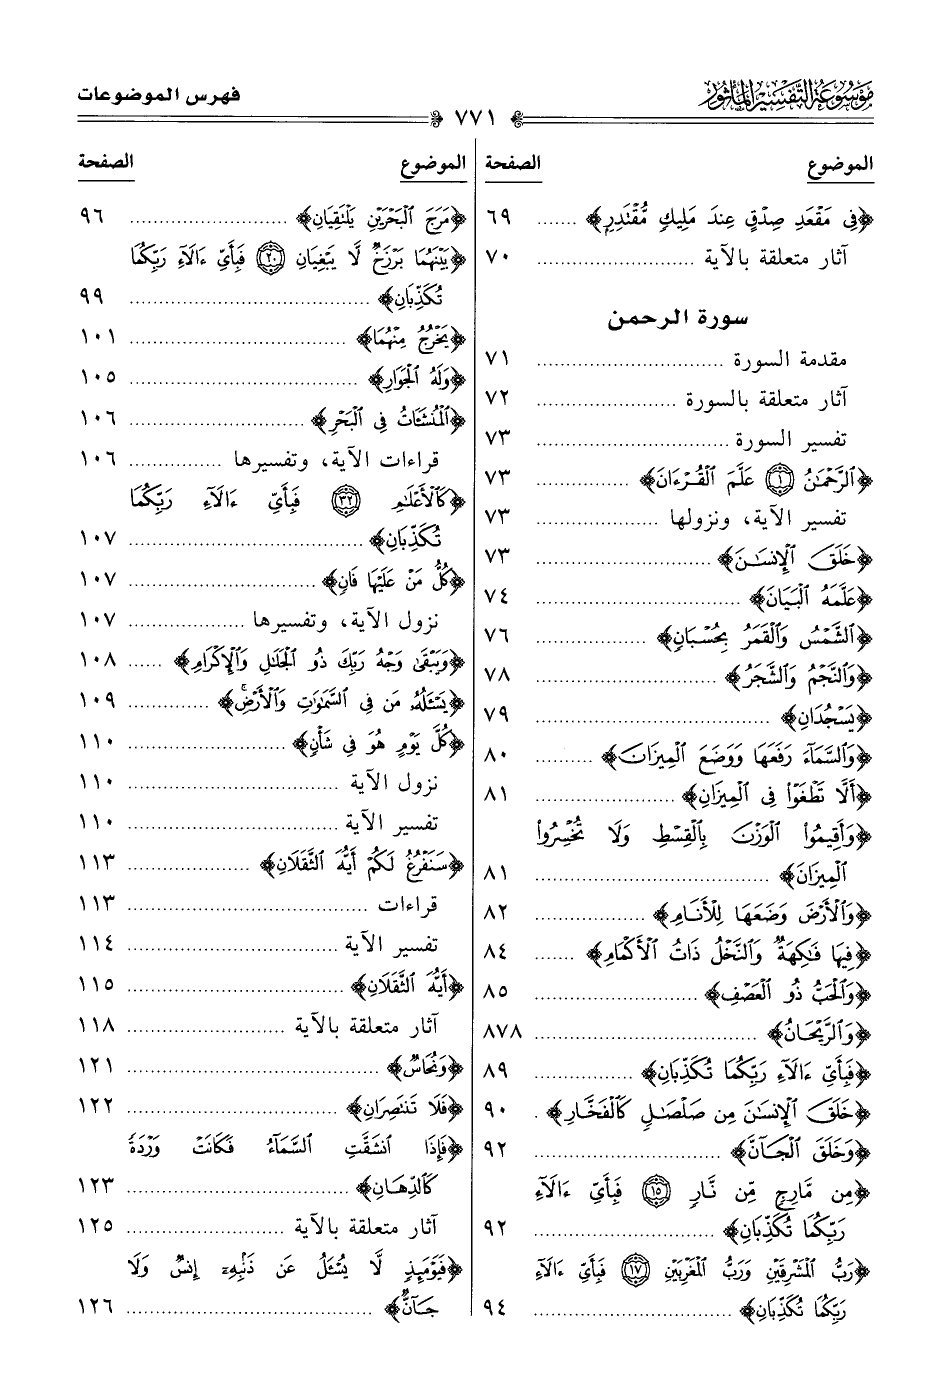 موسوعة التفسير المأثور
فهرس الموضوعات
٧٧١
الموضوع الصفحة
﴿فِي مَقْعَدِ صِدْقٍ عِندَ مَلِيكٍ مُّقْتَدِرٍ﴾ ....... ٦٩
آثار متعلقة بالآية ........................... ٧٠
سورة الرحمن
مقدمة السورة ........................... ٧١
آثار متعلقة بالسورة .................... ٧٢
تفسير السورة ........................... ٧٣
﴿الرَّحْمَٰنُ ١ عَلَّمَ الْقُرْءَانَ﴾ ............. ٧٣
تفسير الآية، ونزولها .................. ٧٣
﴿خَلَقَ الْإِنسَٰنَ﴾ ......................... ٧٣
﴿عَلَّمَهُ الْبَيَانَ﴾ ........................... ٧٤
﴿الشَّمْسُ وَالْقَمَرُ بِحُسْبَانٍ﴾ ............... ٧٦
﴿وَالنَّجْمُ وَالشَّجَرُ﴾ ......................... ٧٨
﴿يَسْجُدَانِ﴾ ................................. ٧٩
﴿وَالسَّمَآءَ رَفَعَهَا وَوَضَعَ الْمِيزَانَ﴾ .......... ٨٠
﴿أَلَّا تَطْغَوْا فِي الْمِيزَانِ﴾ .................... ٨١
﴿وَأَقِيمُوا الْوَزْنَ بِالْقِسْطِ وَلَا تُخْسِرُوا
الْمِيزَانَ﴾ ................................. ٨١
﴿وَالْأَرْضَ وَضَعَهَا لِلْأَنَامِ﴾ ................ ٨٢
﴿فِيهَا فَٰكِهَةٌ وَالنَّخْلُ ذَاتُ الْأَكْمَامِ﴾ ....... ٨٤
﴿وَالْحَبُّ ذُو الْعَصْفِ﴾ ....................... ٨٥
﴿وَالرَّيْحَانُ﴾ ................................ ٨٧٨
﴿فَبِأَيِّ ءَالَآءِ رَبِّكُمَا تُكَذِّبَانِ﴾ .............. ٨٩
﴿خَلَقَ الْإِنسَٰنَ مِن صَلْصَٰلٍ كَالْفَخَّارِ﴾ . ٩٠
﴿وَخَلَقَ الْجَآنَّ﴾ .......................... ٩٢
﴿مِن مَّارِجٍ مِّن نَّارٍ ١٥ فَبِأَيِّ ءَالَآءِ
رَبِّكُمَا تُكَذِّبَانِ﴾ .......................... ٩٢
﴿رَبُّ الْمَشْرِقَيْنِ وَرَبُّ الْمَغْرِبَيْنِ ١٧ فَبِأَيِّ ءَالَآءِ
رَبِّكُمَا تُكَذِّبَانِ﴾ ............................ ٩٤
الموضوع الصفحة
﴿مَرَجَ الْبَحْرَيْنِ يَلْتَقِيَانِ﴾ ....................... ٩٦
﴿بَيْنَهُمَا بَرْزَخٌ لَّا يَبْغِيَانِ ٢٠ فَبِأَيِّ ءَالَآءِ رَبِّكُمَا
تُكَذِّبَانِ﴾ .................................. ٩٩
﴿يَخْرُجُ مِنْهُمَا﴾ ............................... ١٠١
﴿وَلَهُ الْجَوَارِ﴾ ................................. ١٠٥
﴿الْمُنشَئَاتُ فِي الْبَحْرِ﴾ ........................ ١٠٦
قراءات الآية، وتفسيرها ............... ١٠٦
﴿كَالْأَعْلَٰمِ ٣٢ فَبِأَيِّ ءَالَآءِ رَبِّكُمَا
تُكَذِّبَانِ﴾ ................................. ١٠٧
﴿كُلُّ مَنْ عَلَيْهَا فَانٍ﴾ .......................... ١٠٧
نزول الآية، وتفسيرها .................. ١٠٧
﴿وَيَبْقَىٰ وَجْهُ رَبِّكَ ذُو الْجَلَٰلِ وَالْإِكْرَامِ﴾ ...... ١٠٨
﴿يَسْـَٔلُهُ مَن فِي السَّمَٰوَٰتِ وَالْأَرْضِ﴾ ............ ١٠٩
﴿كُلَّ يَوْمٍ هُوَ فِي شَأْنٍ﴾ ...................... ١١٠
نزول الآية ............................... ١١٠
تفسير الآية ............................... ١١٠
﴿سَنَفْرُغُ لَكُمْ أَيُّهَ الثَّقَلَانِ﴾ .................. ١١٣
قراءات ..................................... ١١٣
تفسير الآية ............................... ١١٤
﴿أَيُّهَ الثَّقَلَانِ﴾ ................................ ١١٥
آثار متعلقة بالآية ........................ ١١٨
﴿وَنُحَاسٌ﴾ ..................................... ١٢١
﴿فَلَا تَنتَصِرَانِ﴾ ............................... ١٢٢
﴿فَإِذَا انشَقَّتِ السَّمَآءُ فَكَانَتْ وَرْدَةً
كَالدِّهَانِ﴾ ................................. ١٢٣
آثار متعلقة بالآية ........................ ١٢٥
﴿فَيَوْمَئِذٍ لَّا يُسْـَٔلُ عَن ذَنۢبِهِۦٓ إِنسٌ وَلَا
جَآنٌّ﴾ ..................................... ١٢٦